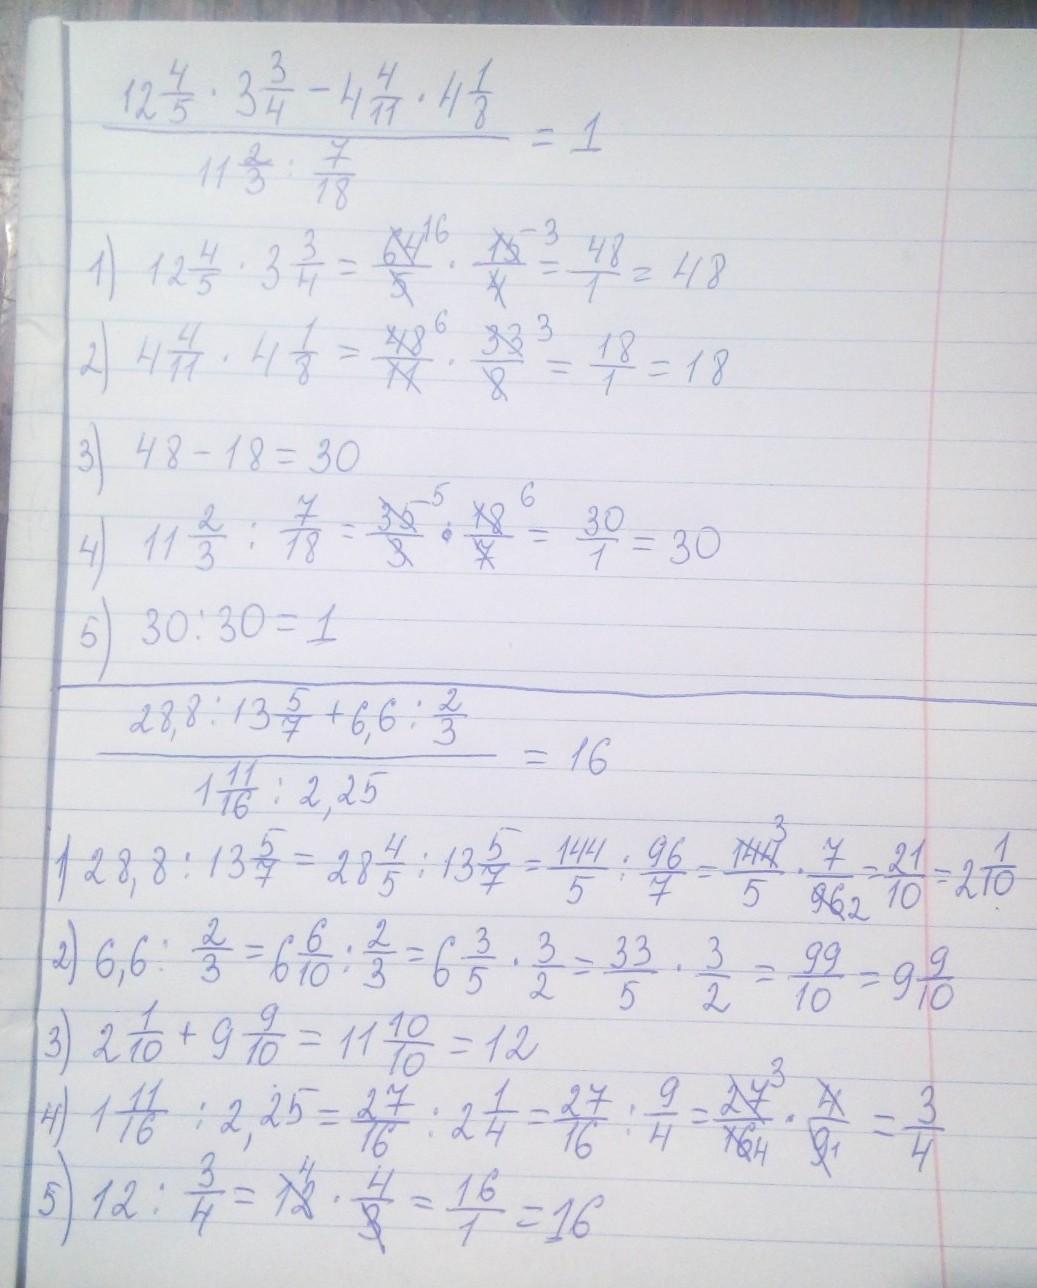 12 4/5 · 3 3/4 − 4 4/11 · 4 1/8
11 2/3 : 7/18
= 1
1) 12 4/5 · 3 3/4 = 64/5 16 · 15/4 −3 = 48/1 = 48
2) 4 4/11 · 4 1/8 = 48/11 6 · 33/8 3 = 18/1 = 18
3) 48 − 18 = 30
4) 11 2/3 : 7/18 = 35/3 −5 · 18/7 6 = 30/1 = 30
5) 30 : 30 = 1
28,8 : 13 5/7 + 6,6 : 2/3
1 11/16 : 2,25
= 16
1) 28,8 : 13 5/7 = 28 4/5 : 13 5/7 = 144/5 : 96/7 = 144/5 3 · 7/96 2 = 21/10 = 2 1/10
2) 6,6 : 2/3 = 6 6/10 : 2/3 = 6 3/5 · 3/2 = 33/5 · 3/2 = 99/10 = 9 9/10
3) 2 1/10 + 9 9/10 = 11 10/10 = 12
4) 1 11/16 : 2,25 = 27/16 : 2 1/4 = 27/16 : 9/4 = 27/16 3 4 · 4/9 1 = 3/4
5) 12 : 3/4 = 12 4 · 4/3 = 16/1 = 16